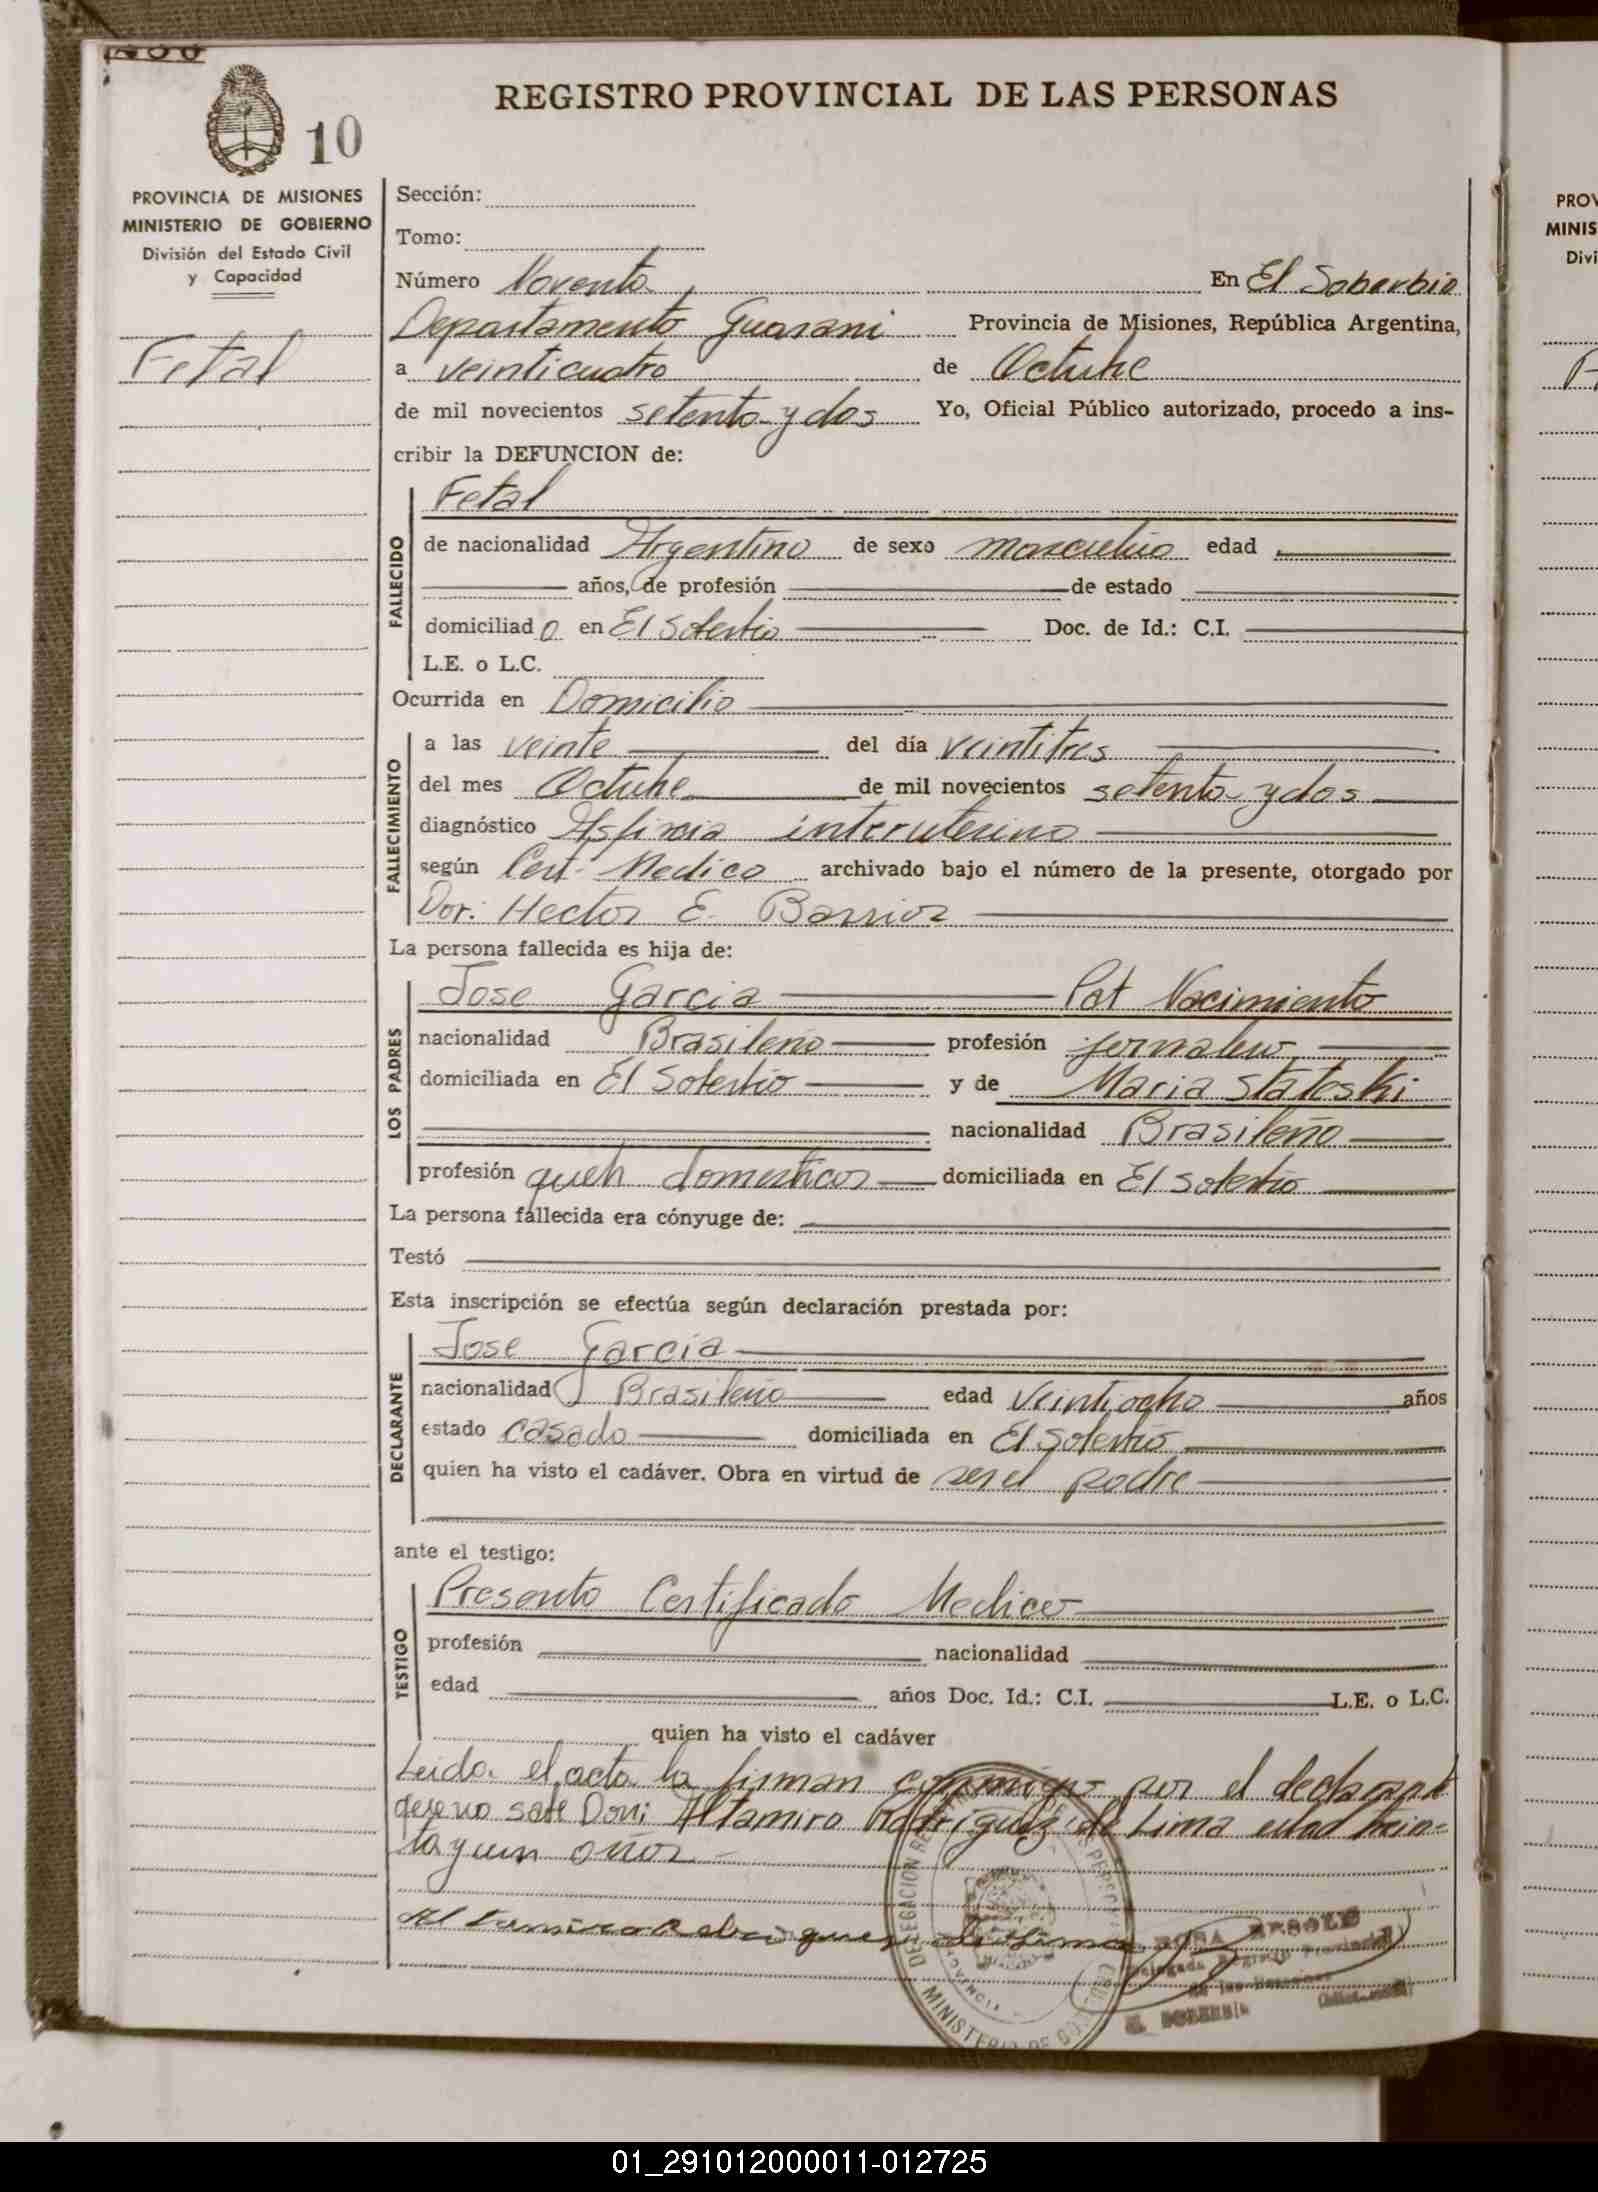 REGISTRO PROVINCIAL DE LAS PERSONAS
10
PROVINCIA DE MISIONES
MINISTERIO DE GOBIERNO
División del Estado Civil
y Capacidad
Fetal
Sección:
Tomo:
Número Noventa En El Soberbio
Departamento Guarani Provincia de Misiones, República Argentina,
a veinticuatro de Octubre
de mil novecientos setenta y dos Yo, Oficial Público autorizado, procedo a ins-
cribir la DEFUNCION de:
FALLECIDO
Fetal
de nacionalidad Argentino de sexo masculino edad
años, de profesión de estado
domiciliad o en El Soberbio Doc. de Id.: C.I.
L.E. o L.C.
Ocurrida en Domicilio
FALLECIMIENTO
a las veinte del día veintitres
del mes Octubre de mil novecientos setenta y dos
diagnóstico Asfixia intruterina
según Cert. Medico archivado bajo el número de la presente, otorgado por
Dor. Hector E. Barrios
La persona fallecida es hija de:
LOS PADRES
Jose Garcia Pat Nacimiento
nacionalidad Brasileño profesión jornalero
domiciliada en El Soberbio y de Maria Stateski
nacionalidad Brasileño
profesión queh domesticos domiciliada en El Soberbio
La persona fallecida era cónyuge de:
Testó
Esta inscripción se efectúa según declaración prestada por:
DECLARANTE
Jose Garcia
nacionalidad Brasileño edad Veintiocho años
estado casado domiciliada en El Soberbio
quien ha visto el cadáver. Obra en virtud de ser el padre
ante el testigo:
TESTIGO
Presento Certificado Medico
profesión nacionalidad
edad años Doc. Id.: C.I. L.E. o L.C.
quien ha visto el cadáver
Leida el acta la firman conmigo por el declarante
que no sabe Don: Altamiro Rodriguez de Lima edad trein-
ta y un años
Altamiro Rodrigues de Lima
DELEGACION
MINISTERIO DE
EL SOBERBIO
PROV
MINIS
Divi
01_291012000011-012725